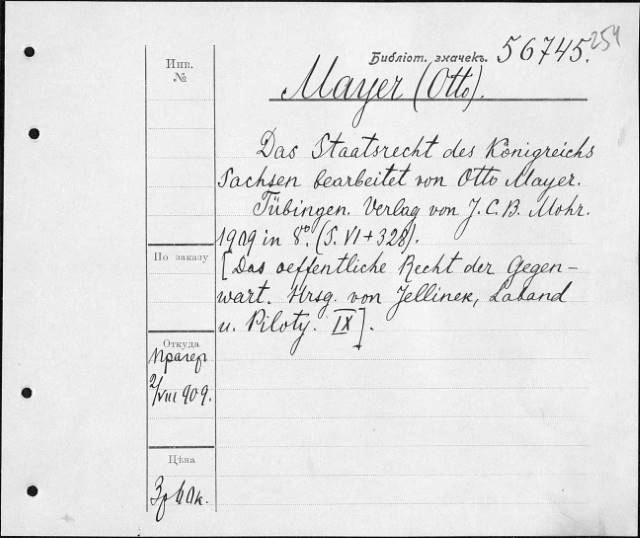 Инв. №
Библіот. значекъ. 56745. 254
Mayer (Otto).
Das Staatsrecht des Königreichs
Sachsen bearbeitet von Otto Mayer.
Tübingen. Verlag von J. C. B. Mohr.
1909 in 8º. (S. VI + 328).
[Das oeffentliche Recht der Gegen-
wart. Hrsg. von Jellinek, Laband
u. Piloty. IX].
По заказу
Откуда
Прагер
2/VIII 909.
Цѣна